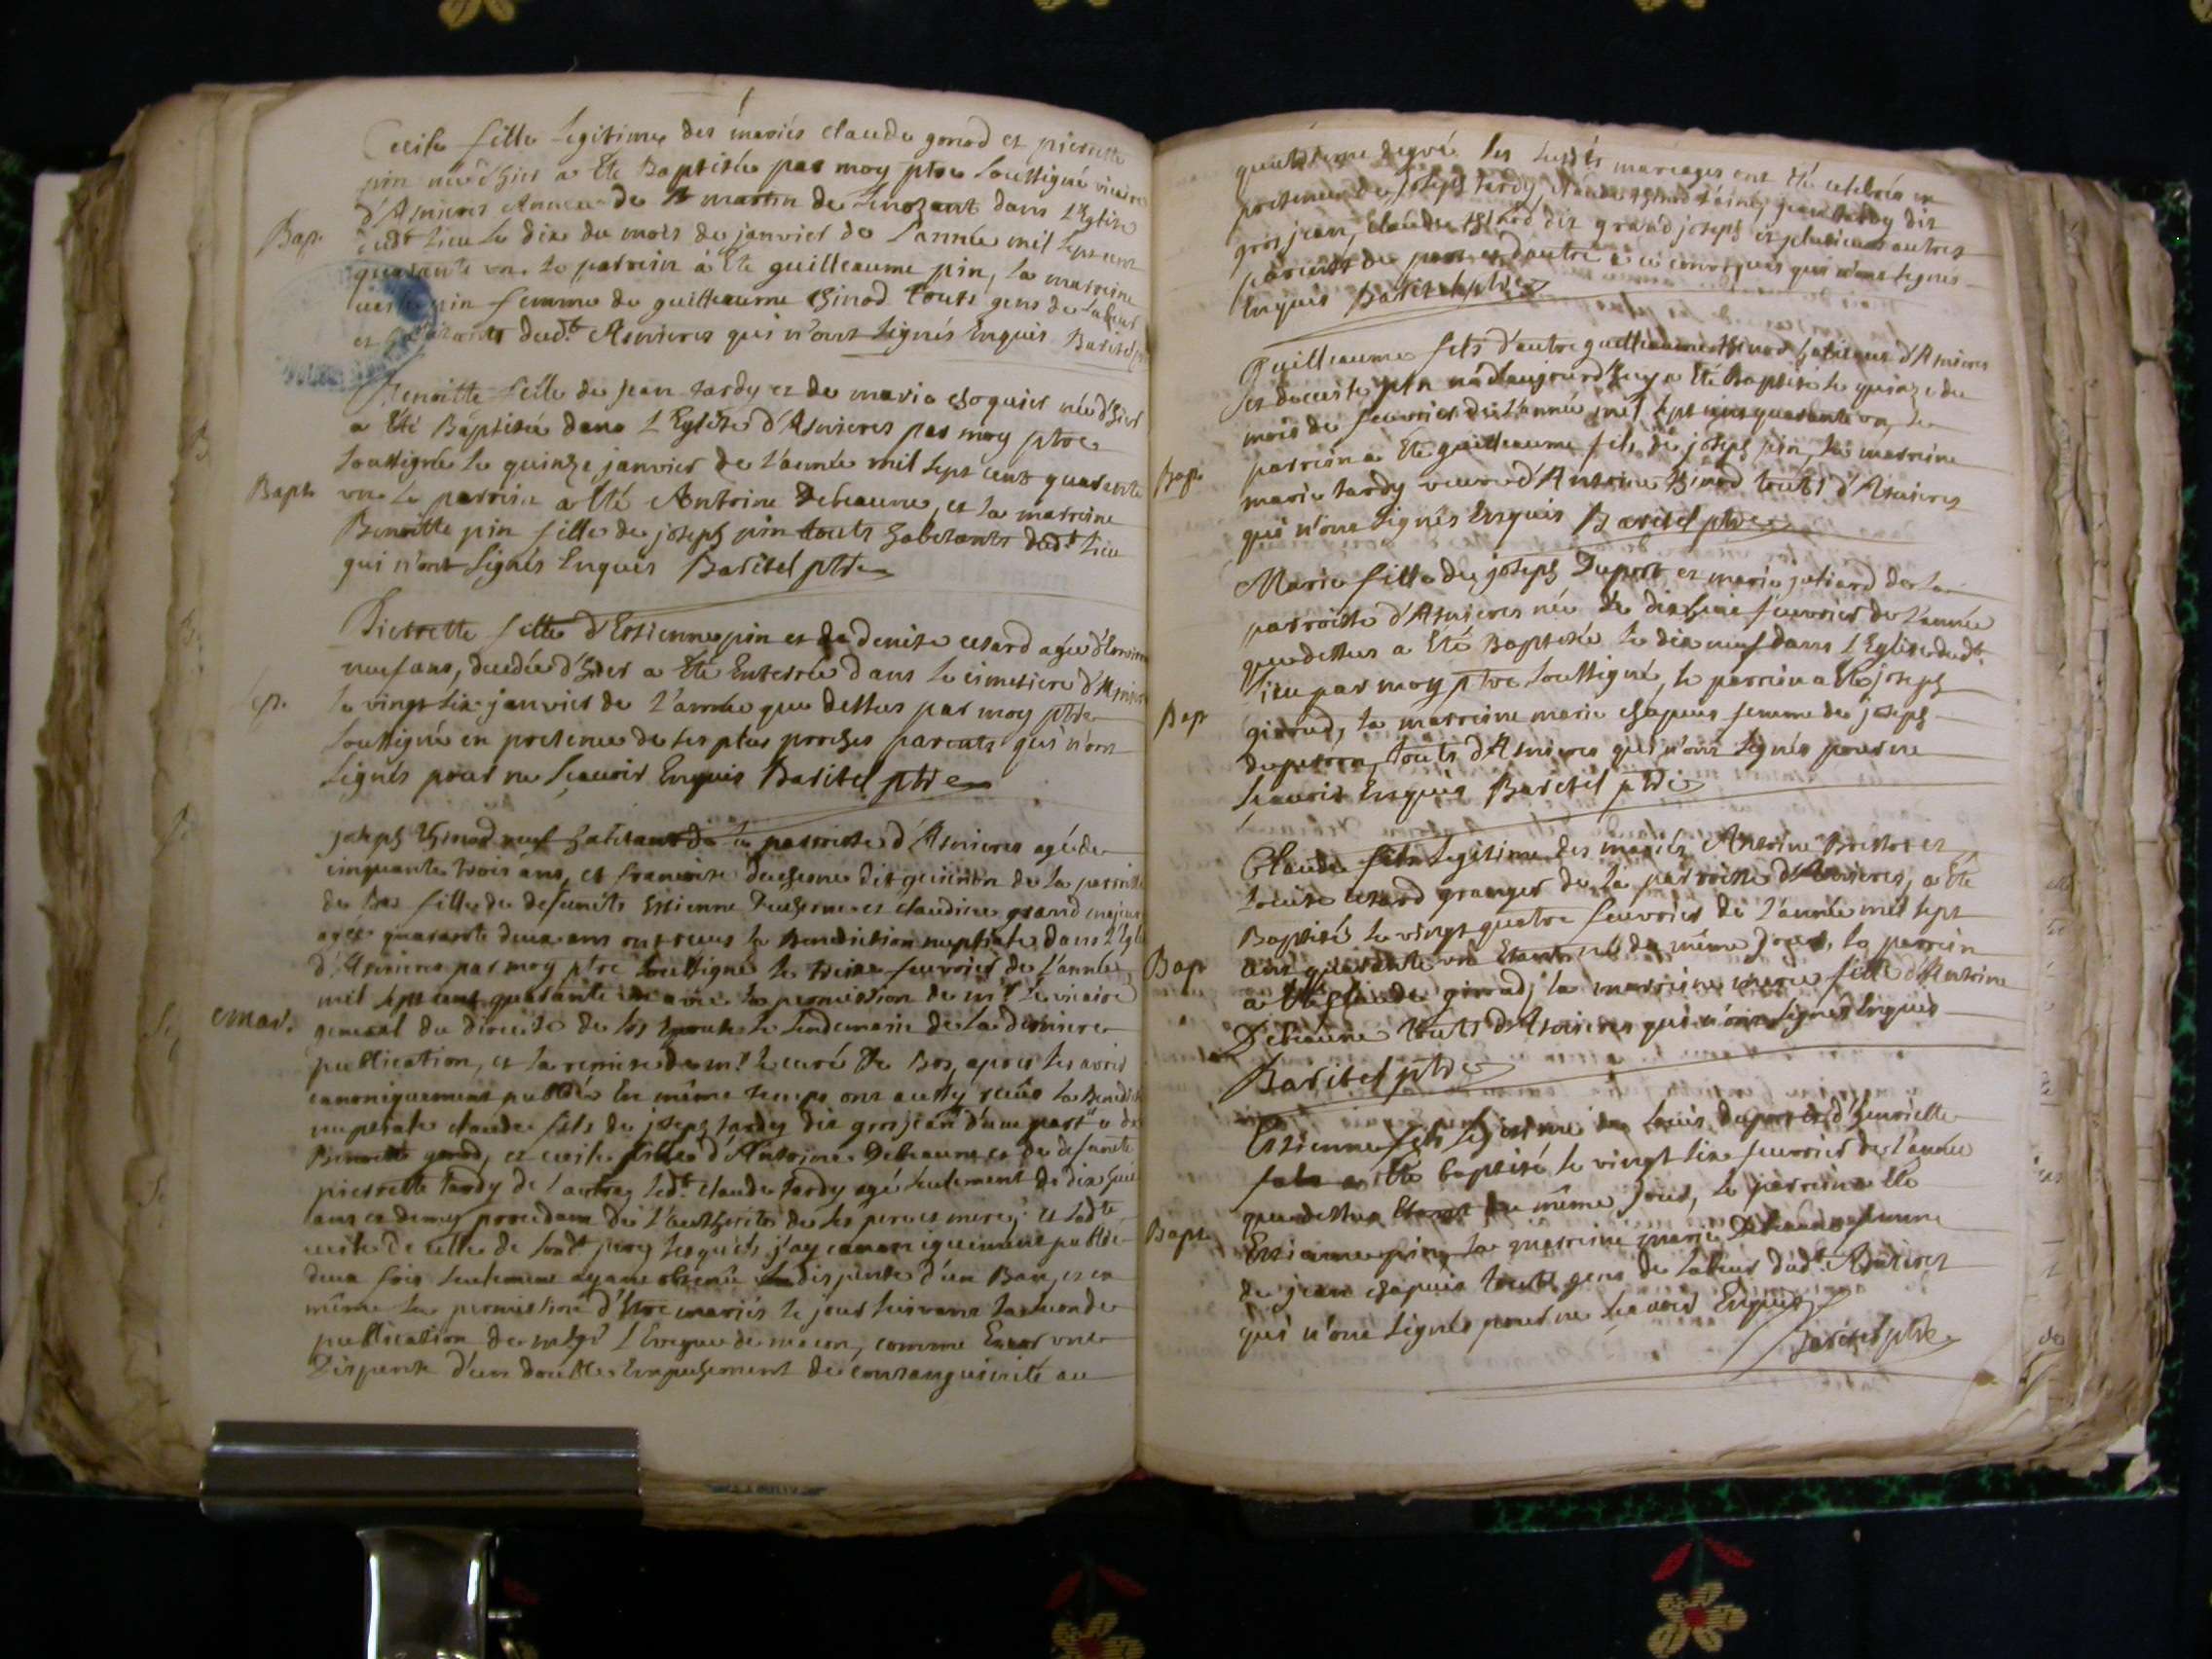 Cecile fille Legitime des mariés claude gonod et pierrette
pin née d'hier a Eté Baptisée par moy ptre soussigné vicaire
d'Asnieres Annexe de St martin de senozant dans L'Eglise
Bap. dudt Lieu Le dix du mois de janvier de L'année mil sept cent
quarante un Le parrein à Eté guilleaume pin, La marreine
pin femme de guilleaume thinod touts gens de Labeur
et habitants dudt Asnieres qui n'ont signés Enquis Baritel
Benoitte fille de jean tardy et de marie née d'hier
a Eté Baptisée dans L'Eglise d'Asnieres par moy ptre
soussigné Le quinze janvier de L'année mil sept cent quarante
Bapt. un Le parrein a Eté Antoine Debeaune, et La marreine
Benoitte pin fille de joseph pin touts habitants dudt Lieu
qui n'ont signés Enquis Baritel ptre
Pierrette fille d'Estienne pin et de denise cesard agée d'Environ
neuf ans, decedée d'hier a Eté Enterrée dans Le cimetiere d'Asnieres
Le vingt six janvier de L'année que dessus par moy ptre
soussigné en presence de ses plus proches parents qui n'ont
signés pour ne sçavoir Enquis Baritel ptre
joseph thinod veuf habitant de La parroisse d'Asnieres agé de
cinquante trois ans, et francoise duchesne dit de La parroisse
de Bos fille de defuncts Estienne Duchesne et claudine grand majeure
agée quarante deux ans ont reçus La Benediction nuptiale dans L'Eglise
d'Asnieres par moy ptre soussigné Le treize feuvrier de L'année
mil sept cent quarante un avec La permission de mr Le vicaire
mar. general du diocese de Le Lendemain de La derniere
publication, et La remise de mr Le curé De Bos, apres Les avoir
canoniquement publiés En même temps ont aussy reçus La Benediction
nuptiale claude fils de joseph tardy dit gros jean d'une part et de
Benoitte gonod, et cecile fille d'Antoine Debeaune et de defuncte
pierrette tardy de L'autre, Ledt claude tardy agé seulement de dix huit
ans et demy procedant de L'authorité de ses pere et mere, et Ladte
cecile de celle de sondt pere Lesquels j'ay canoniquement publié
deux fois seulement ayant obtenû dispense d'un Ban, et en
même La permission d'Etre mariés Le jour suivant La seconde
publication de msgr L'Eveque de macon, comme Encor une
Dispense d'un double Empechement de consanguinité au
quatrieme degré Les susdts mariages ont Eté celebrés en
presence de joseph tardy, claude thinod L'ainé, jean tardy dit
gros jean, claude thinod dit grand joseph et plusieurs autres
parents de part et d'autre a ce convoqués qui n'ont signés
Enquis Baritel ptre
Guilleaume fils d'autre guilleaume thinod habitant d'Asnieres
et de cecile pin né d'aujourd'huy a Eté Baptisé Le quinze du
mois de feuvrier de L'année mil sept cent quarante un, Le
Bap. parrein a Eté guilleaume fils de joseph pin, La marreine
marie tardy veuve d'Antoine thinod touts d'Asnieres
qui n'ont signés Enquis Baritel ptre
Marie fille de joseph Duport et marie juliard de La
parroisse d'Asnieres née Le dix huit feuvrier de L'année
que dessus a Eté Baptisée Le dix neuf dans L'Eglise dudt
Lieu par moy ptre soussigné, Le parrein a Eté joseph
Bapt. giroud, La marreine marie chapuis femme de joseph
duperron, touts d'Asnieres qui n'ont signés pour ne
sçavoir Enquis Baritel ptre
Claude fils Legitime des mariés Antoine et
Louise cesard granger de La parroisse d'Asnieres, a Eté
Baptisé Le vingt quatre feuvrier de L'année mil sept
Bap. cent quarante un Etant né du même jour, Le parrein
a Eté claude giroud, La marreine marie fille d'Antoine
Debeaune touts d'Asnieres qui n'ont signés Enquis
Baritel ptre
Estienne fils Legitime de Louis duport et d'henriette
a Eté baptisé Le vingt six feuvrier de L'année
que dessus Etant du même jour, Le parrein a Eté
Bapt. Estienne pin, La marreine marie Debeaune femme
de jean chapuis touts gens de Labeur dudt Asnieres
qui n'ont signés pour ne sçavoir Enquis
Baritel ptre